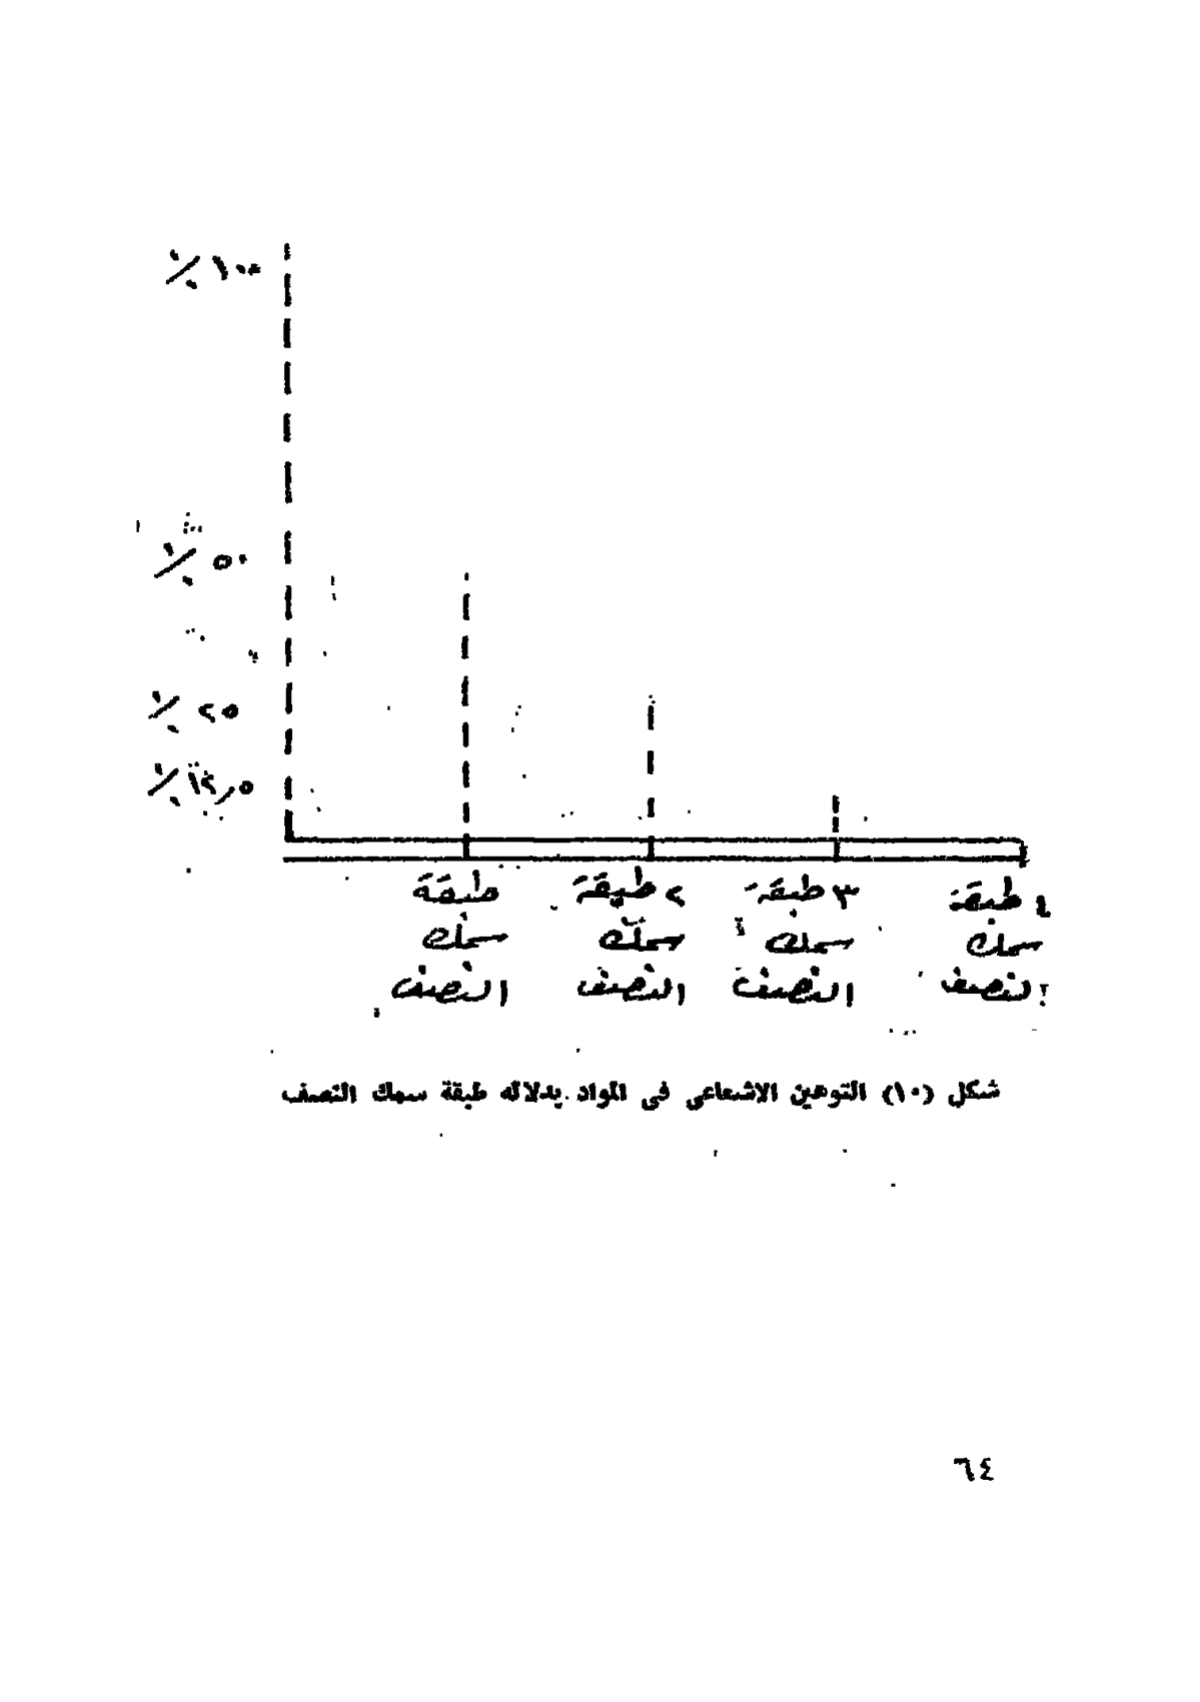 ٪ ١٠٠
٪ ٥٠
٪ ٢٥
٪ ١٢,٥
طبقة
سمك
النصف
٢ طبقة
سمك
النصف
٣ طبقة
سمك
النصف
٤ طبقة
سمك
النصف
شكل (١٠) التوهين الاشعاعى فى المواد بدلاله طبقة سمك النصف
٦٤